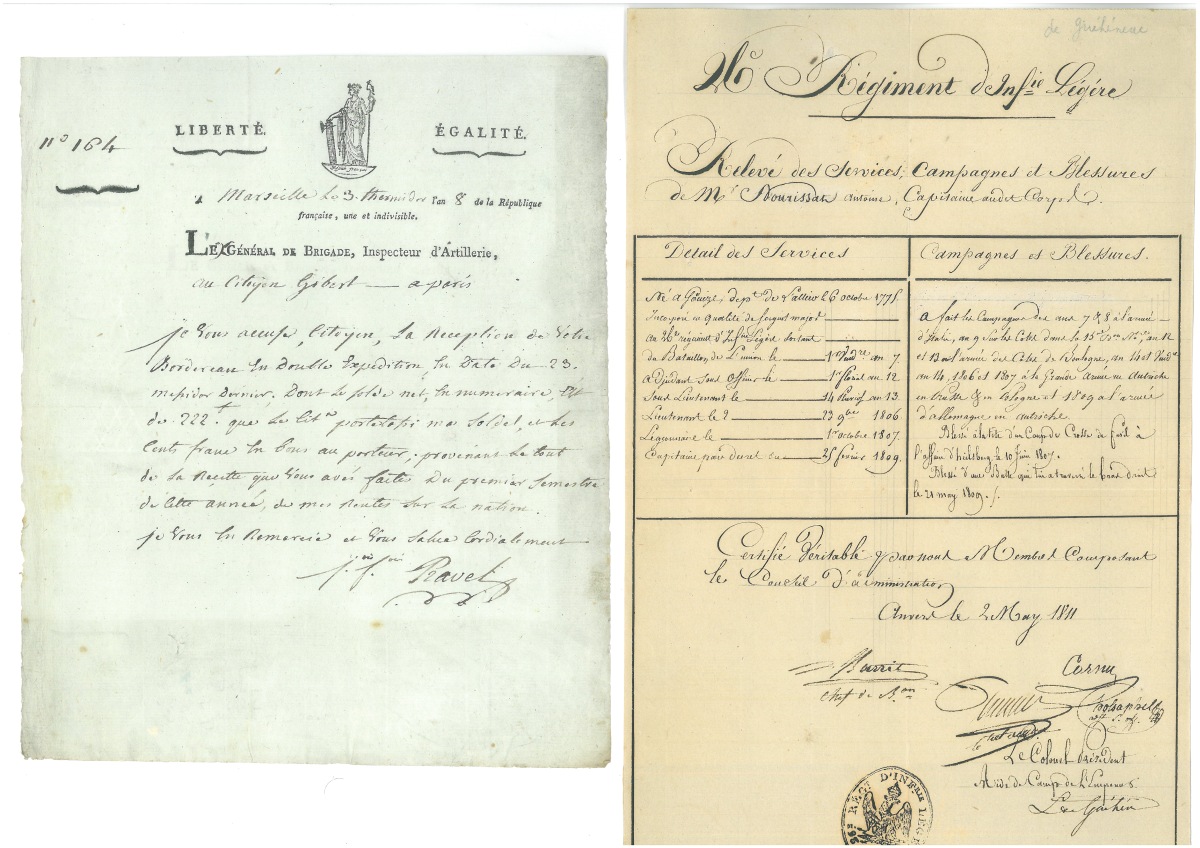 N° 164
LIBERTÉ.
ÉGALITÉ.
A Marseille le 3 thermidor l'an 8 de la République
française, une et indivisible.
LE GÉNÉRAL DE BRIGADE, Inspecteur d'Artillerie,
au Citoyen Gibert — a paris
je Vous accuse, Citoyen, La Reception de Votre
Bordereau En Double Expédition, En Date Du 23
messidor Dernier. Dont le solde net, En numeraire, Est
de 222 que le Cit
Cents francs En Bons au porteur; provenant Le tout
de La Recette que Vous avés faitte Du premier Semestre
de Cette année, de mes Rentes sur La nation.
je Vous En Remercie et Vous Salue Cordialement
Ravel
de Guéhéneuc
26e Régiment d'Infie Légére
Relevé des Services, Campagnes et Blessures
de Mr Nourissat antoine, Capitaine audit Corps.
Détail des Services
Né a dept de l'allier 26 octobre 1775.
Incorporé en Qualité de sergent major
au régiment d'Infrie Légére sortant
du Bataillon de 1er an 7
adjudant sous officier le 1er floréal an 12
Sous Lieutenant le 14 an 13.
Lieutenant le 2 23 9bre 1806.
Légionnaire le 1er octobre 1807.
Capitaine par decret du 25 février 1809.
Campagnes et Blessures.
a fait les Campagnes des ans 7 & 8 a l'armée
d'Italie, an 9 sur les Côtes dans le 15e an 12
et 13 a l'armée des Côtes de Boulogne, an 14
an 14, 1806 et 1807 a la Grande Armée en autriche
en Prusse & en Pologne et 1809 a l'armée
d'allemagne en autriche.
Blessé a la tête d'un Coup de Crosse de fusil à
l'affaire d'heilsberg le 10 juin 1807.
Blessé d'une Balle qui lui a traversé le bras droit
le 21 may 1809.
Certifié Véritable par nous Membres Composant
le Conseil D'administration
Anvers le 2 May 1811
Barré
Chef de Bon
Cornu
Le Colonel Président
Aide de Camp de L'Empereur
RÉGT D'INFRIE LÉG